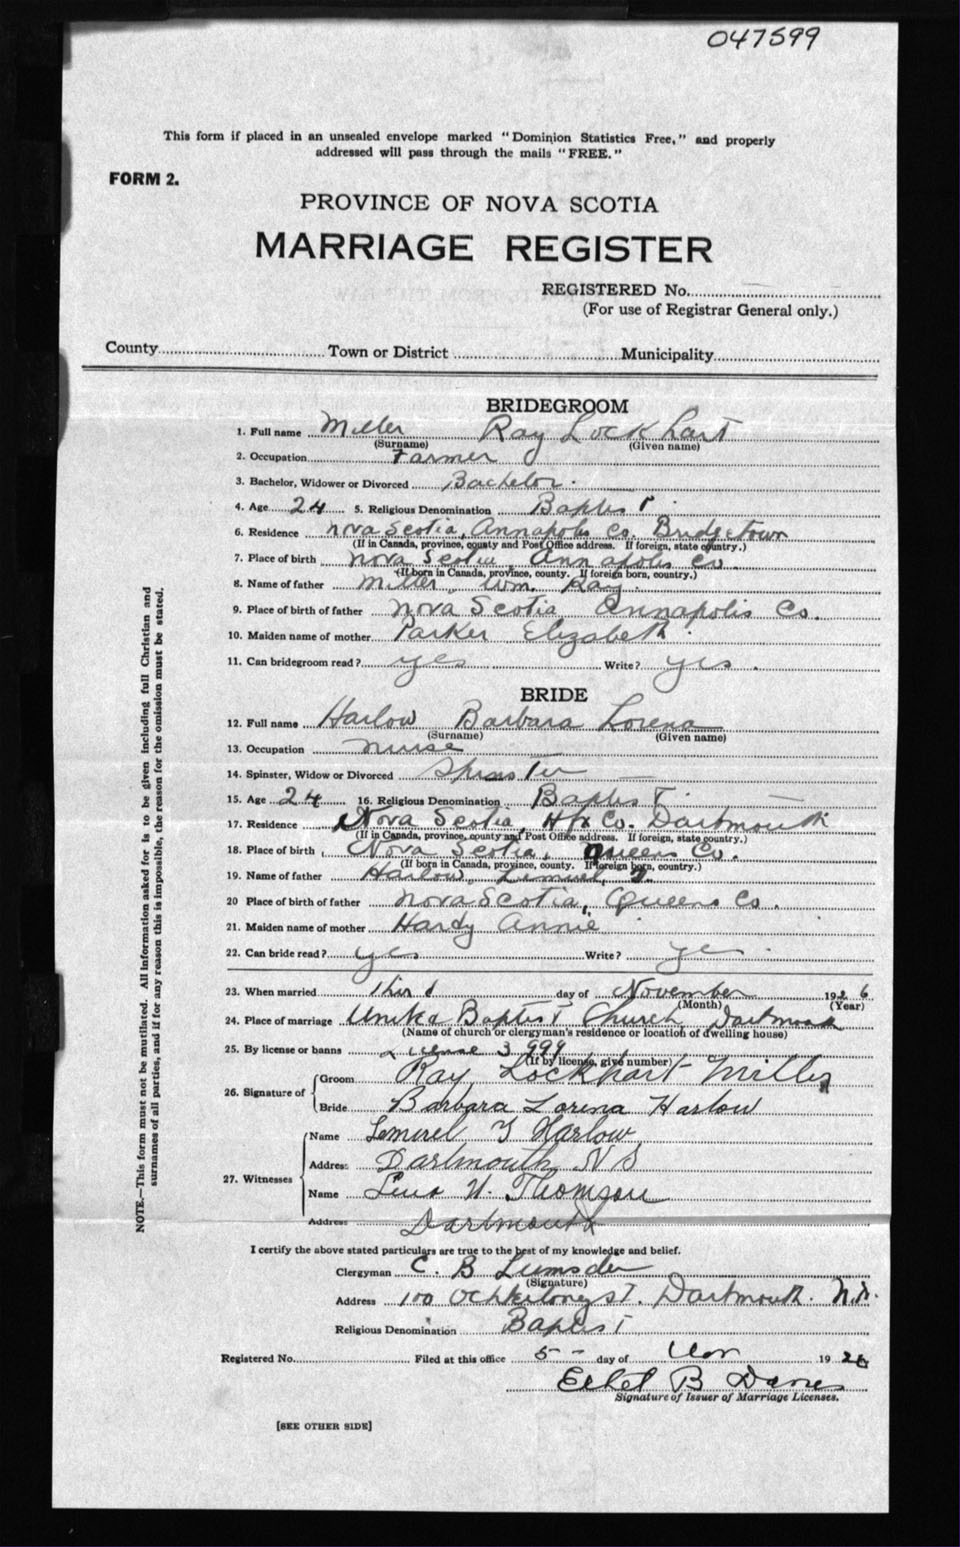 047599
This form if placed in an unsealed envelope marked "Dominion Statistics Free," and properly
addressed will pass through the mails "FREE."
FORM 2.
PROVINCE OF NOVA SCOTIA
MARRIAGE REGISTER
REGISTERED No.
(For use of Registrar General only.)
County Town or District Municipality
BRIDEGROOM
1. Full name Miller Ray Lockhart
(Surname) (Given name)
2. Occupation Farmer
3. Bachelor, Widower or Divorced Bachelor.
4. Age 24 5. Religious Denomination Baptist
6. Residence Nova Scotia, Annapolis Co. Bridgetown
(If in Canada, province, county and Post Office address. If foreign, state country.)
7. Place of birth Nova Scotia Annapolis Co.
(If born in Canada, province, county. If foreign born, country.)
8. Name of father Miller, Wm. Ray.
9. Place of birth of father Nova Scotia Annapolis Co.
10. Maiden name of mother Parker Elizabeth.
11. Can bridegroom read? yes Write? yes.
BRIDE
12. Full name Harlow Barbara Lorena
(Surname) (Given name)
13. Occupation nurse
14. Spinster, Widow or Divorced Spinster
15. Age 24 16. Religious Denomination Baptist
17. Residence Nova Scotia, Hfx Co. Dartmouth
(If in Canada, province, county and Post Office address. If foreign, state country.)
18. Place of birth Nova Scotia, Queens Co.
(If born in Canada, province, county. If foreign born, country.)
19. Name of father Harlow, Lemuel
20 Place of birth of father Nova Scotia, Queens Co.
21. Maiden name of mother Hardy Annie
22. Can bride read? yes Write? yes
23. When married third day of November 1926
(Month) (Year)
24. Place of marriage Baptist Church, Dartmouth
(Name of church or clergyman's residence or location of dwelling house)
25. By license or banns License 3999
(If by license, give number)
26. Signature of Groom Ray Lockhart Miller
Bride Barbara Lorena Harlow
27. Witnesses Name Lemuel Y Harlow
Address Dartmouth, N S
Name Lena Thomson
Address Dartmouth
I certify the above stated particulars are true to the best of my knowledge and belief.
Clergyman C. B Lumsden
(Signature)
Address 100 St. Dartmouth. N.S.
Religious Denomination Baptist
Registered No. Filed at this office 5 - day of Nov 1926
Ethel B
Signature of Issuer of Marriage Licenses.
[SEE OTHER SIDE]
NOTE.—This form must not be mutilated. All information asked for is to be given including full Christian and
surnames of all parties, and if for any reason this is impossible, the reason for the omission must be stated.